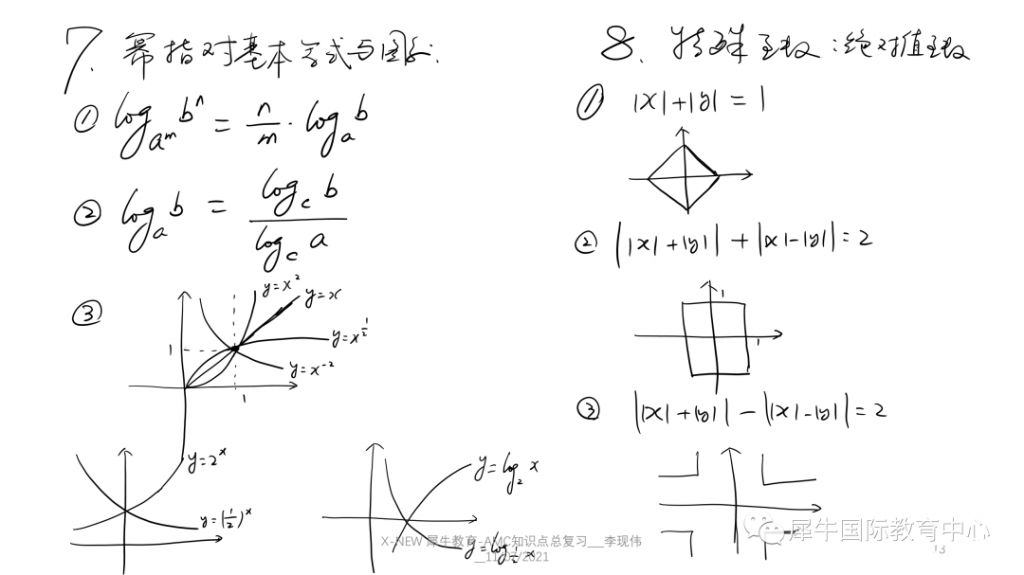 7. 幂指对基本等式与图示.
① log_{a^m} b^n = n/m · log_a b
② log_a b = log_c b / log_c a
③
y=x^2
y=x
y=x^{1/2}
y=x^{-2}
1
1
y=2^x
y=(1/2)^x
y=log_2 x
y=log_{1/2} x
8. 特殊函数:绝对值函数
① |x|+|y|=1
② ||x|+|y||+||x|-|y||=2
1
1
③ ||x|+|y||-||x|-|y||=2
犀牛国际教育中心
X-NEW 犀牛教育-AMC知识点总复习__李现伟
13